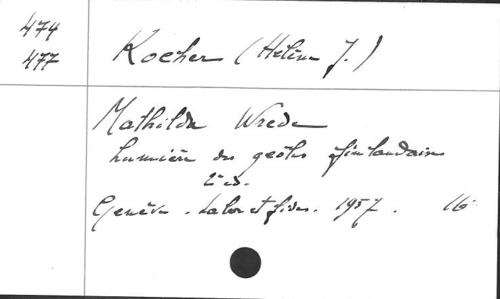 474
477
Kocher (Hélène J.)
Mathilda Wrede
Lumière des geôles finlandaises
2e éd.
Genève. Labor et fides. 1957. 16